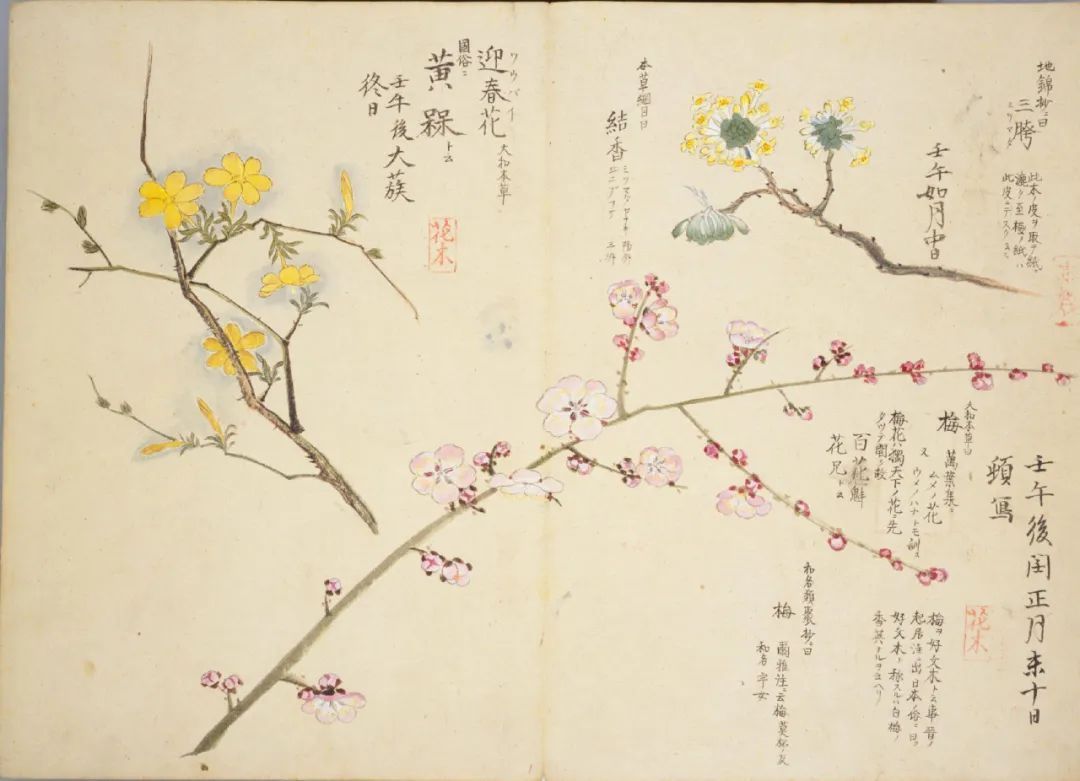 地錦抄ニ曰
三胯
ミツマタ
此木ノ皮ヲ取テ紙ニ
漉ク至極ノ紙ハ
壬午如月中日
本草綱目曰
結香
壬午後閏正月末十日
頓寫
花木
大和本草曰
梅
萬葉集ニ
ムメノ花
又
ウメノハナトモ訓ス
梅花ハ獨天下ノ花ニ先
タツテ開ク故
百花魁
花兄トス
梅ヲ好文木ト云事晉ノ
起居注ニ出日本ノ俗ニ曰
好文木ト称スルハ白梅ノ
和名類聚抄ニ曰
梅
爾雅注ニ云梅
和名宇女
迎春花
ワウバイ
大和本草
國俗ニ
黄槑トス
壬午後大蔟
終日
花木